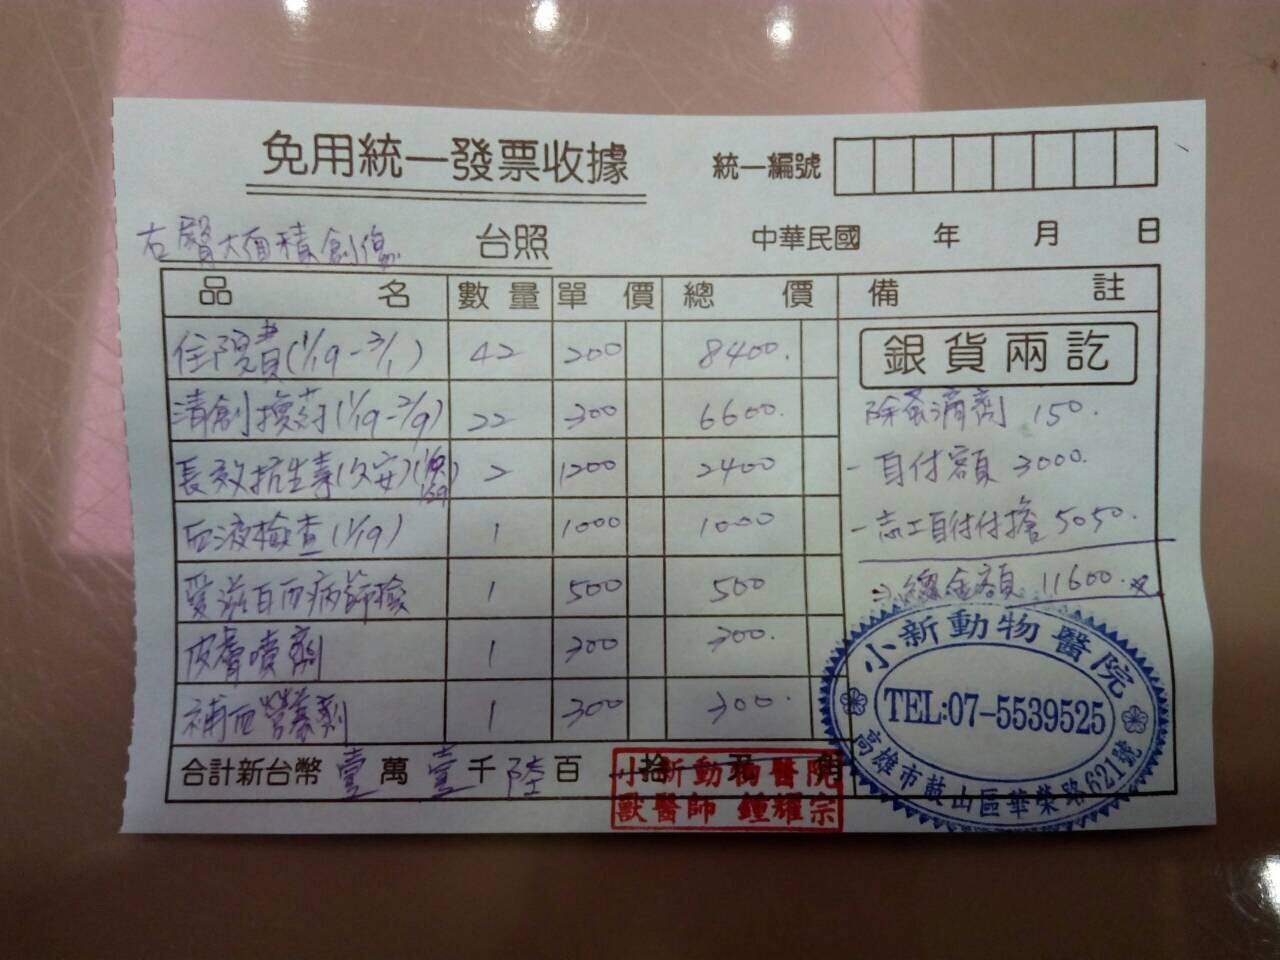 免用統一發票收據 統一編號
右臀大面積創傷 台照 中華民國 年 月 日
品名 數量 單價 總價 備註
住院費(1/19-3/1) 42 200 8400. 銀貨兩訖
清創換葯(1/19-2/9) 22 300 6600. 除蚤滴劑 150.
長效抗生素(欠安) 2 1200 2400 -自付額 3000.
血液檢查(1/19) 1 1000 1000 -志工自付付擔 5050.
愛滋白血病篩檢 1 500 500 總金額 11600.
皮膚噴劑 1 300 300.
補血營養劑 1 300 300.
合計新台幣 壹 萬 壹 千 陸 百 拾 元 角
小新動物醫院
獸醫師 鍾耀宗
小新動物醫院
TEL:07-5539525
高雄市鼓山區華榮路621號